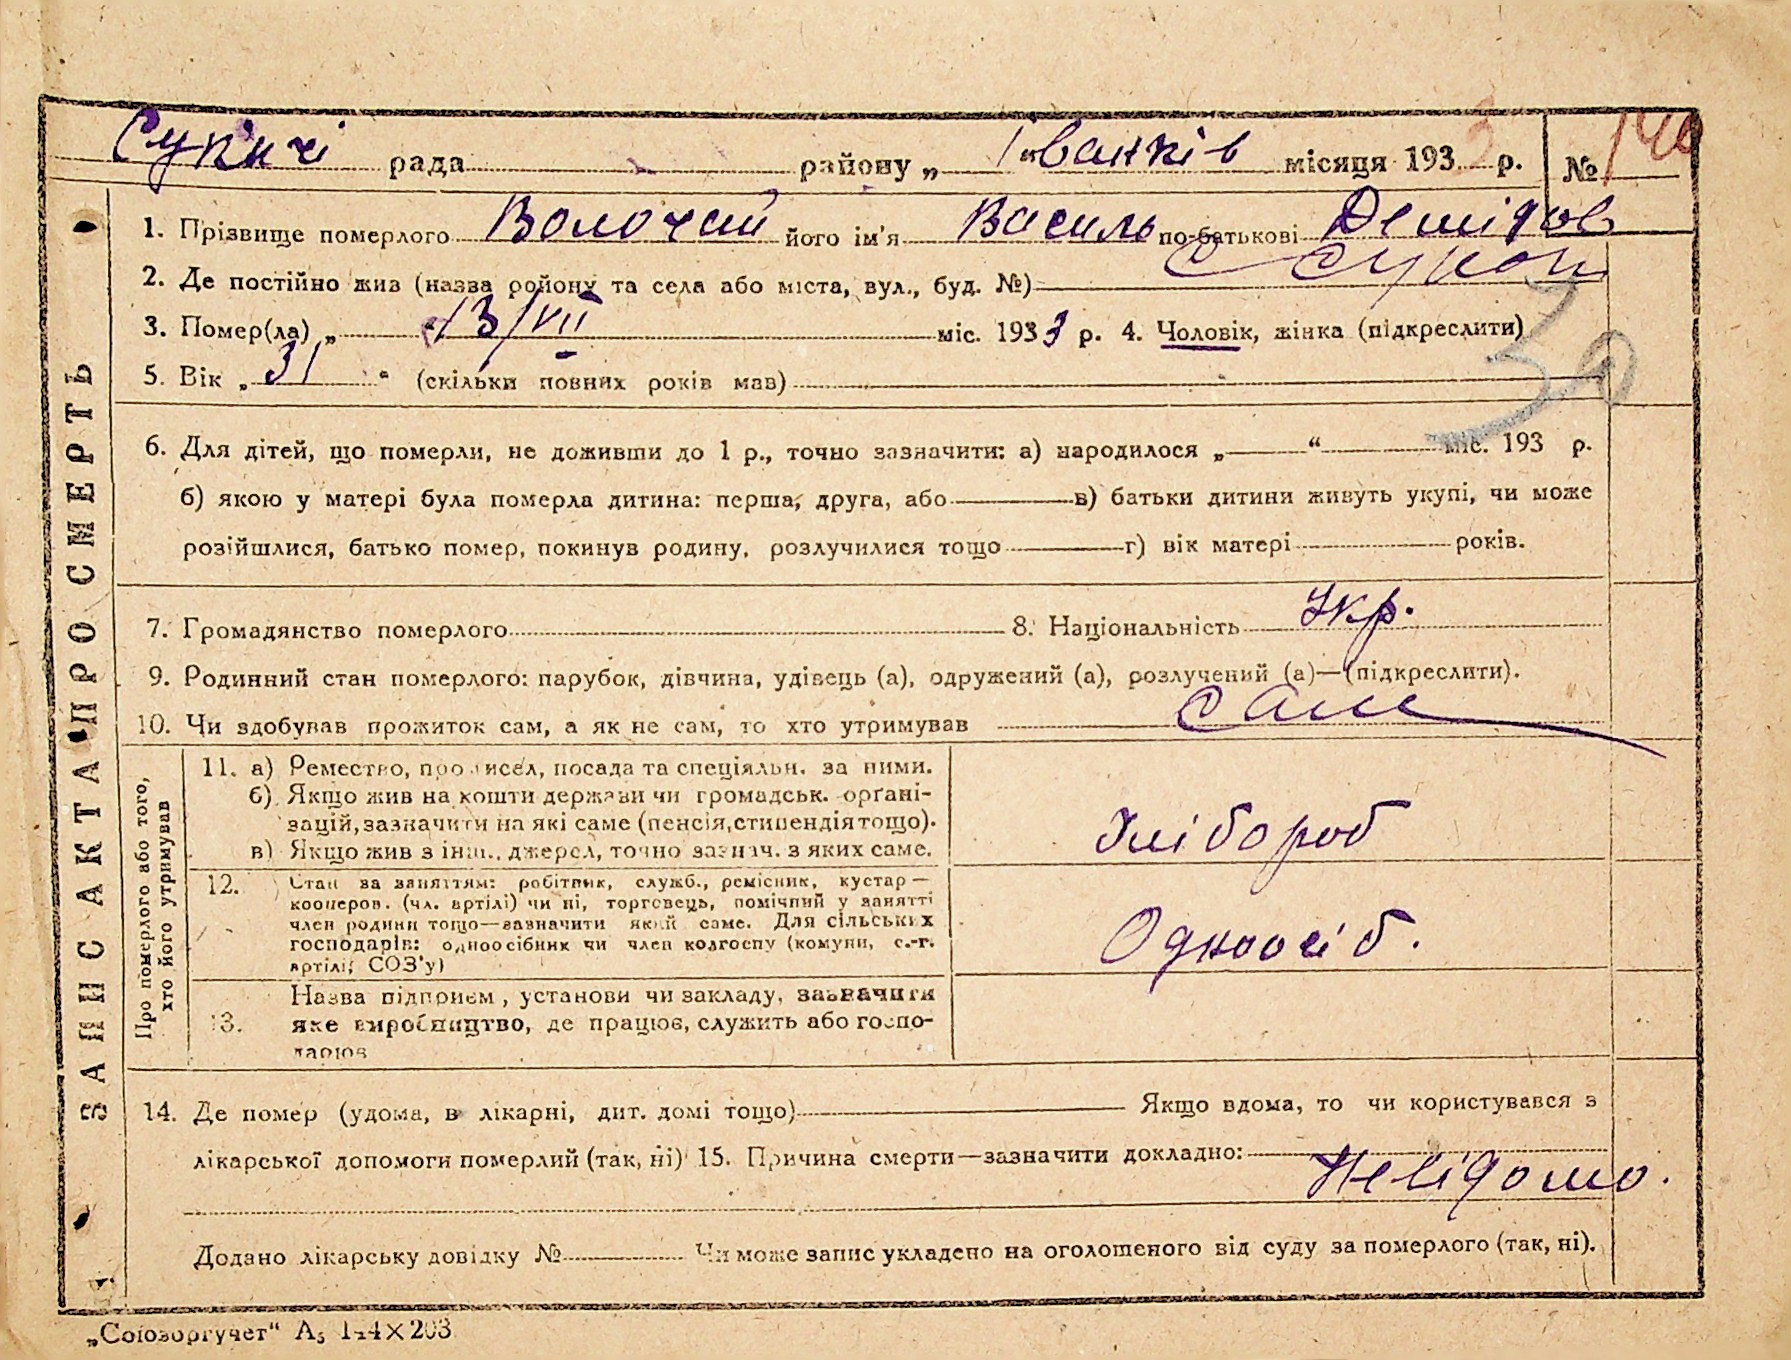 Сукачі рада районy „ Іванків місяця 1933 р. № 140
1. Прізвище померлого Волочай його ім'я Василь по-батькові Демідов
2. Де постійно жив (назва району та села або міста, вул., буд. №) с Сукачі
3. Помер(ла) „ 13/VII міс. 1933 р. 4. Чоловік, жінка (підкреслити)
5. Вік „ 31 " (скільки повних років мав)
30
6. Для дітей, що померли, не доживши до 1 р., точно зазначити: а) народилося „ “ міс. 193 р.
б) якою у матері була померла дитина: перша, друга, або в) батьки дитини живуть укупі, чи може
розійшлися, батько помер, покинув родину, розлучилися тощо г) вік матері років.
7. Громадянство померлого 8. Національність Укр.
9. Родинний стан померлого: парубок, дівчина, удівець (а), одружений (а), розлучений (а)—(підкреслити).
10. Чи здобував прожиток сам, а як не сам, то хто утримував сам
11. а) Ремество, промисел, посада та спеціяльн. за ними.
б) Якщо жив на кошти держави чи громадськ. орґані-
зацій, зазначити на які саме (пенсія, стипендія тощо).
в) Якщо жив з інш. джерел, точно зазнач. з яких саме.
Хлібороб
12. Стан за заняттям: робітник, служб., ремісник, кустар—
кооперов. (чл. артілі) чи ні, торговець, помічний у занятті
член родини тощо—зазначити який саме. Для сільських
господарів: одноосібник чи член колгоспу (комуни, с.-г.
артілі, СОЗ'у)
Одноосіб.
13. Назва підприєм, установи чи закладу, зазначити
яке виробництво, де працює, служить або госпо-
дарює
14. Де помер (удома, в лікарні, дит. домі тощо) Якщо вдома, то чи користувався з
лікарської допомоги померлий (так, ні) 15. Причина смерти—зазначити докладно:
Невідомо.
Додано лікарську довідку № Чи може запис укладено на оголошеного від суду за померлого (так, ні).
ЗАПИС АКТА ПРО СМЕРТЬ
Про померлого або того,
хто його утримував
„Союзоргучет“ А5 144×203